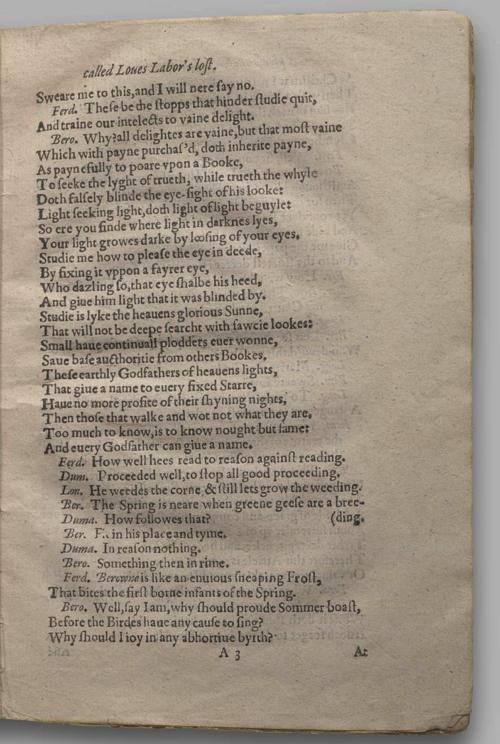 called Loues Labor's lost.
Sweare me to this, and I will nere say no.
Ferd. These be the stopps that hinder studie quit,
And traine our intelects to vaine delight.
Bero. Why? all delightes are vaine, but that most vaine
Which with payne purchas'd, doth inherite payne,
As paynefully to poare vpon a Booke,
To seeke the lyght of trueth, while trueth the whyle
Doth falsely blinde the eye-sight of his looke:
Light seeking light, doth light of light beguyle:
So ere you finde where light in darknes lyes,
Your light growes darke by loosing of your eyes.
Studie me how to please the eye in deede,
By fixing it vppon a fayrer eye,
Who dazling so, that eye shalbe his heed,
And giue him light that it was blinded by.
Studie is lyke the heauens glorious Sunne,
That will not be deepe searcht with sawcie lookes:
Small haue continuall plodders euer wonne,
Saue base aucthoritie from others Bookes.
These earthly Godfathers of heauens lights,
That giue a name to euery fixed Starre,
Haue no more profite of their shyning nights,
Then those that walke and wot not what they are.
Too much to know, is to know nought but fame:
And euery Godfather can giue a name.
Ferd. How well hees read to reason against reading.
Dum. Proceeded well, to stop all good proceeding.
Lon. He weedes the corne, & still lets grow the weeding.
Ber. The Spring is neare when greene geese are a bree-
Duma. How followes that? (ding.
Ber. Fit in his place and tyme.
Duma. In reason nothing.
Bero. Something then in rime.
Ferd. Berowne is like an enuious sneaping Frost,
That bites the first borne infants of the Spring.
Bero. Well, say I am, why should proude Sommer boast,
Before the Birdes haue any cause to sing?
Why should I ioy in any abhortiue byrth?
A 3 At